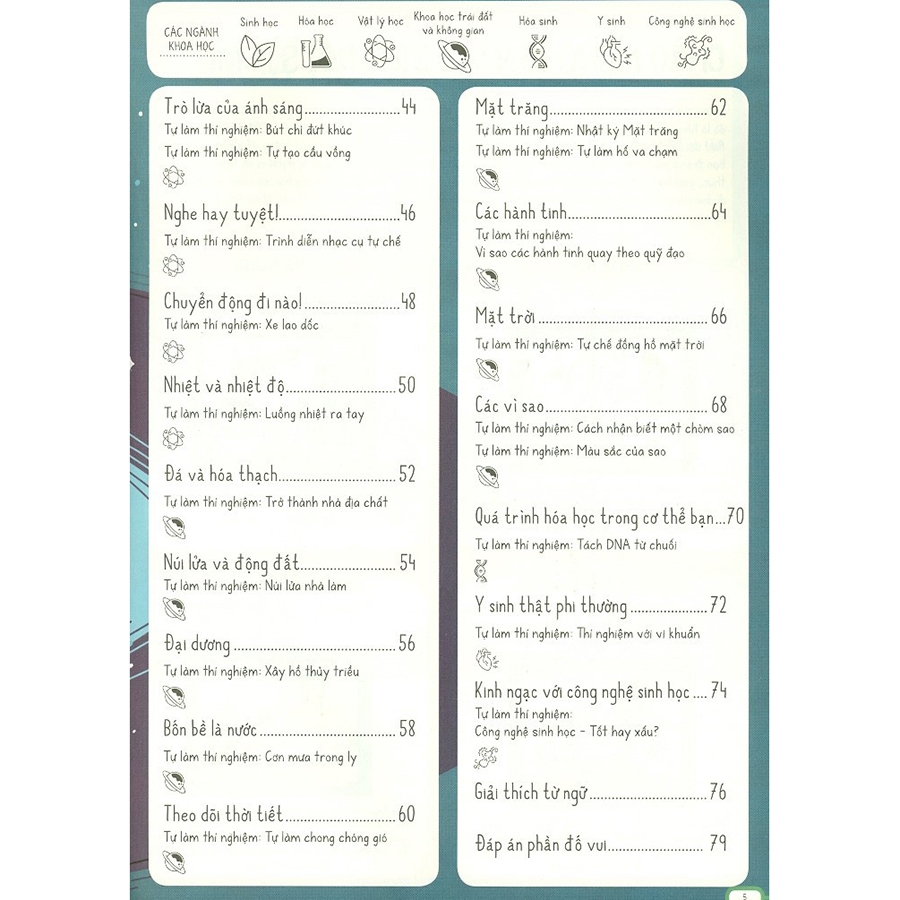 CÁC NGÀNH
KHOA HỌC
Sinh học
Hóa học
Vật lý học
Khoa học trái đất
và không gian
Hóa sinh
Y sinh
Công nghệ sinh học
Trò lừa của ánh sáng..........................44
Tự làm thí nghiệm: Bút chì đứt khúc
Tự làm thí nghiệm: Tự tạo cầu vồng
Nghe hay tuyệt!................................46
Tự làm thí nghiệm: Trình diễn nhạc cụ tự chế
Chuyển động đi nào!..........................48
Tự làm thí nghiệm: Xe lao dốc
Nhiệt và nhiệt độ..............................50
Tự làm thí nghiệm: Luồng nhiệt ra tay
Đá và hóa thạch................................52
Tự làm thí nghiệm: Trở thành nhà địa chất
Núi lửa và động đất..........................54
Tự làm thí nghiệm: Núi lửa nhà làm
Đại dương............................................56
Tự làm thí nghiệm: Xây hồ thủy triều
Bốn bề là nước....................................58
Tự làm thí nghiệm: Cơn mưa trong ly
Theo dõi thời tiết..............................60
Tự làm thí nghiệm: Tự làm chong chóng gió
Mặt trăng............................................62
Tự làm thí nghiệm: Nhật ký Mặt trăng
Tự làm thí nghiệm: Tự làm hố va chạm
Các hành tinh......................................64
Tự làm thí nghiệm:
Vì sao các hành tinh quay theo quỹ đạo
Mặt trời..............................................66
Tự làm thí nghiệm: Tự chế đồng hồ mặt trời
Các vì sao............................................68
Tự làm thí nghiệm: Cách nhận biết một chòm sao
Tự làm thí nghiệm: Màu sắc của sao
Quá trình hóa học trong cơ thể bạn...70
Tự làm thí nghiệm: Tách DNA từ chuối
Y sinh thật phi thường.....................72
Tự làm thí nghiệm: Thí nghiệm với vi khuẩn
Kinh ngạc với công nghệ sinh học....74
Tự làm thí nghiệm:
Công nghệ sinh học - Tốt hay xấu?
Giải thích từ ngữ................................76
Đáp án phần đố vui..........................79
5